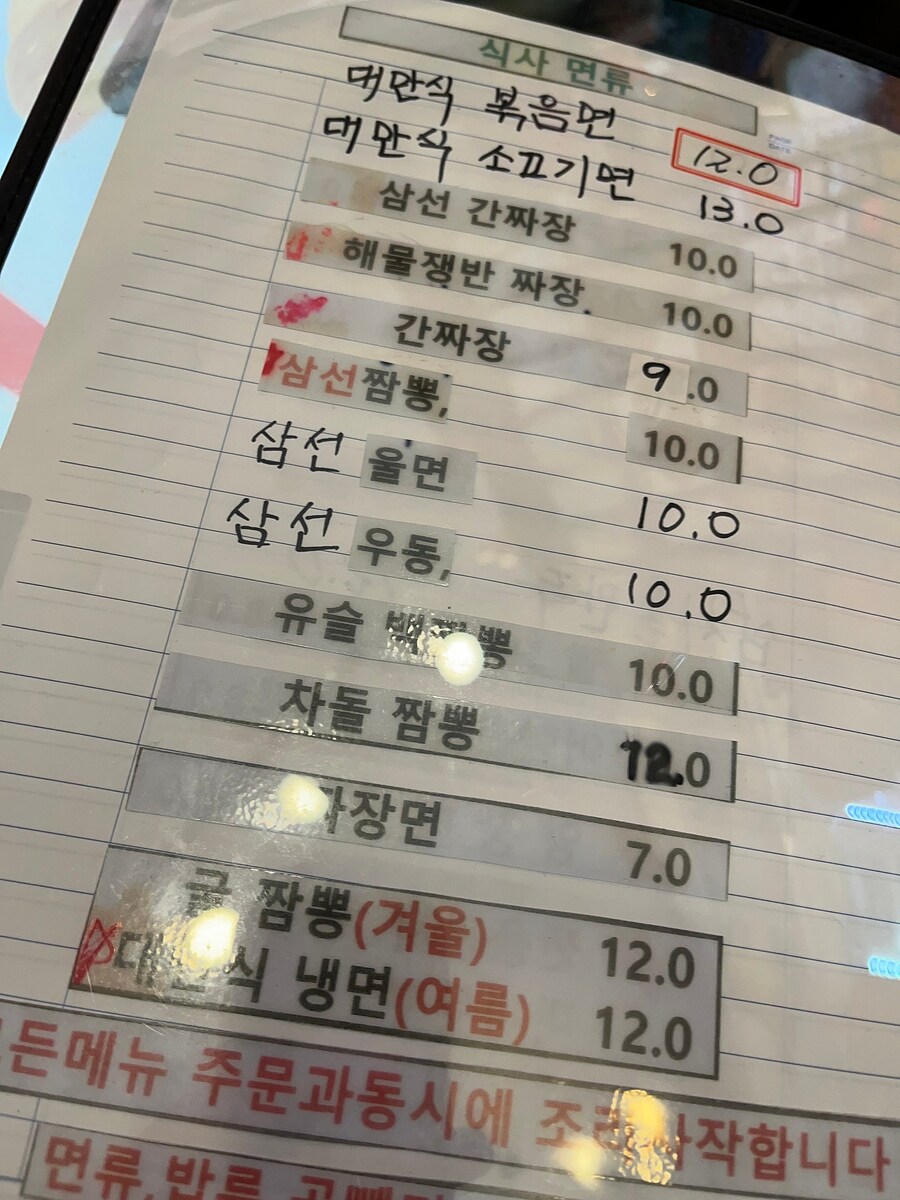 식사 면류
대만식 볶음면 12.0
대만식 소고기면 13.0
삼선 간짜장 10.0
해물쟁반 짜장. 10.0
간짜장 9.0
삼선짬뽕, 10.0
삼선 울면 10.0
삼선 우동, 10.0
유슬 백짬뽕 10.0
차돌 짬뽕 12.0
짜장면 7.0
굴 짬뽕(겨울) 12.0
대만식 냉면(여름) 12.0
모든메뉴 주문과동시에 조리시작합니다
면류,밥류